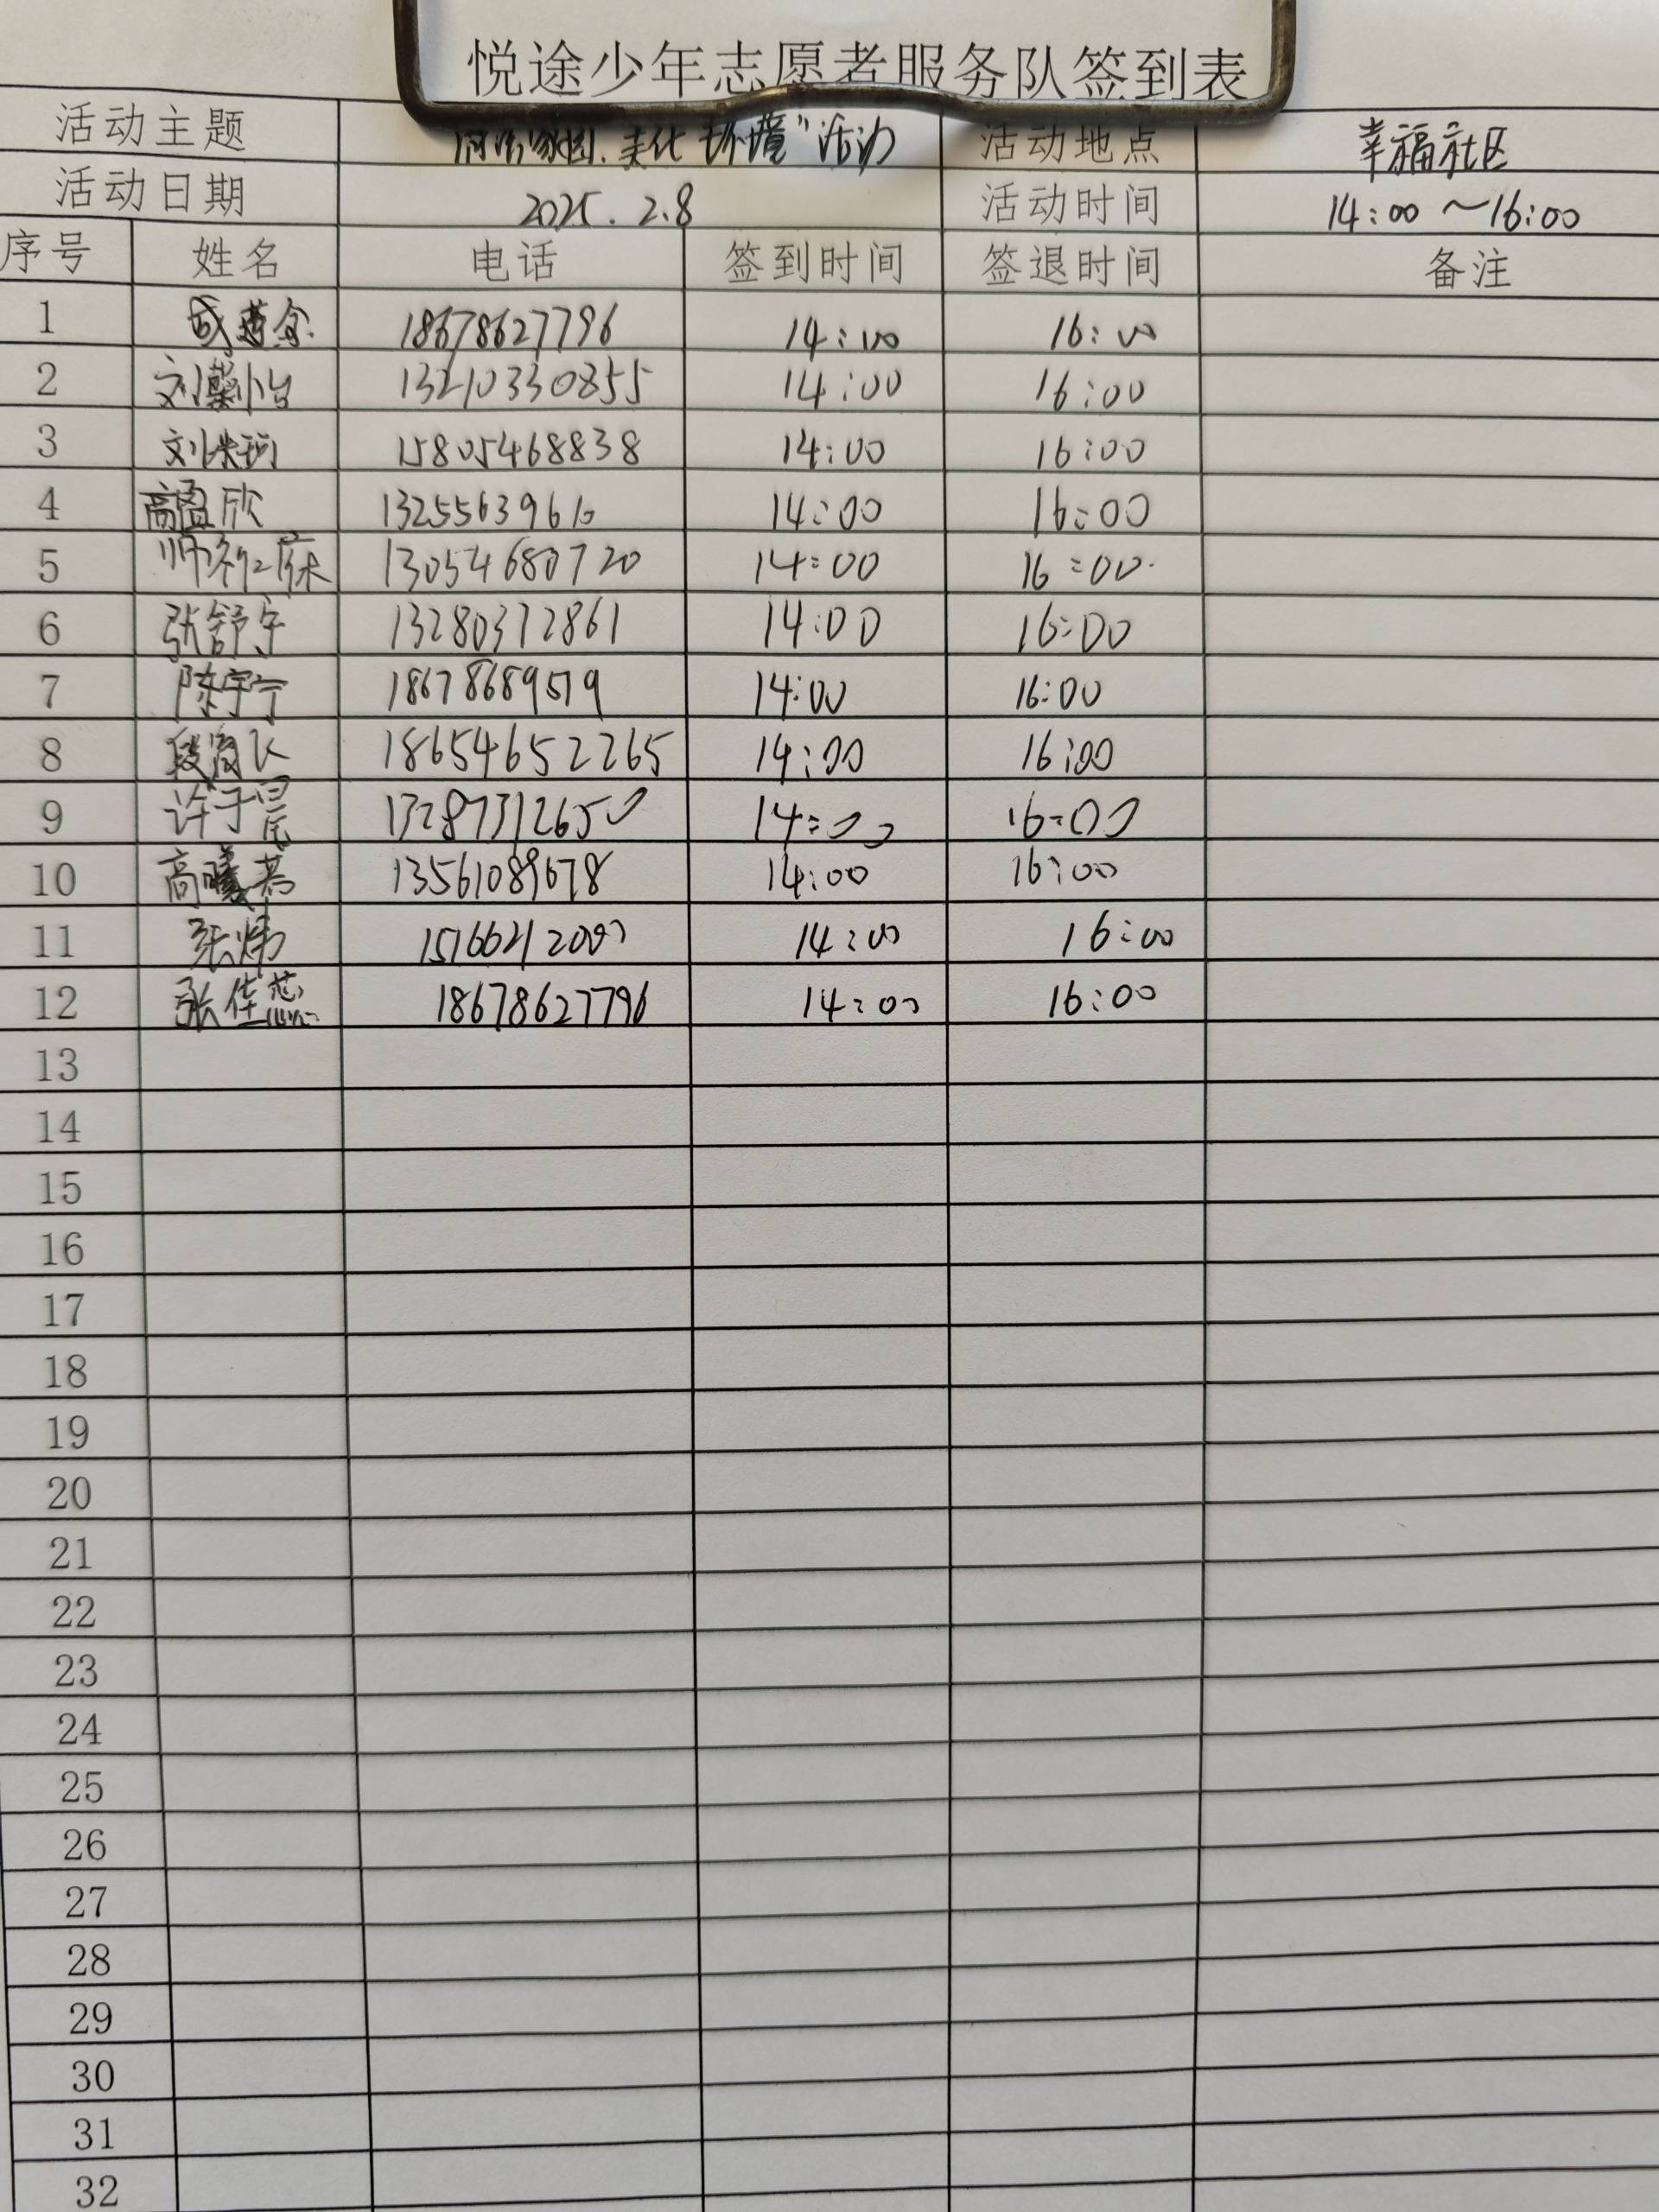 悦途少年志愿者服务队签到表
活动主题 家园.美化环境"活动 活动地点 幸福社区
活动日期 2025.2.8 活动时间 14:00～16:00
序号 姓名 电话 签到时间 签退时间 备注
1 18678627796 14:00 16:00
2 刘 13210330855 14:00 16:00
3 刘 15805468838 14:00 16:00
4 高盈欣 13255639610 14:00 16:00
5 13054680720 14:00 16:00
6 张舒宇 13280372861 14:00 16:00
7 陈宇宁 18678689519 14:00 16:00
8 段 18654652265 14:00 16:00
9 许子 13287312650 14:00 16:00
10 高 13561089678 14:00 16:00
11 张炜 14:00 16:00
12 张佳 18678627796 14:00 16:00
13
14
15
16
17
18
19
20
21
22
23
24
25
26
27
28
29
30
31
32